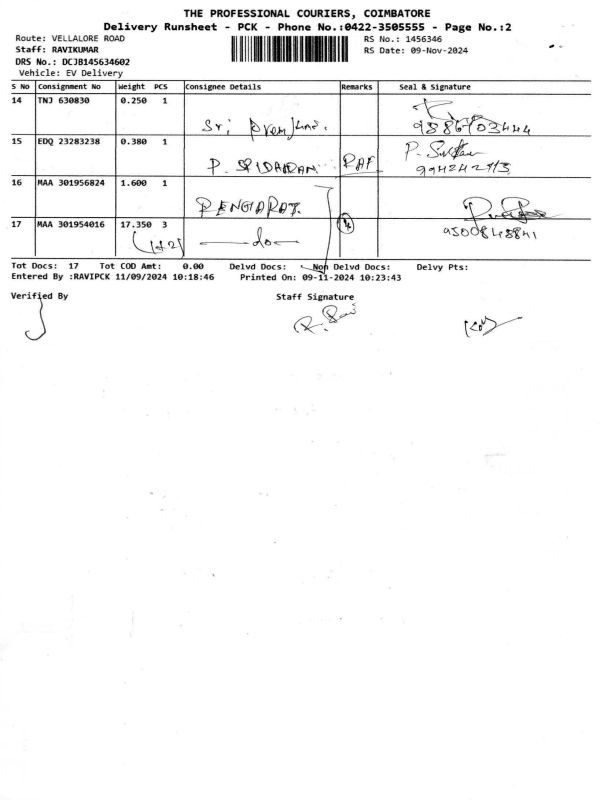 THE PROFESSIONAL COURIERS, COIMBATORE
Delivery Runsheet - PCK - Phone No.:0422-3505555 - Page No.:2
Route: VELLALORE ROAD RS No.: 1456346
Staff: RAVIKUMAR RS Date: 09-Nov-2024
DRS No.: DCJB145634602
Vehicle: EV Delivery
S No Consignment No Weight PCS Consignee Details Remarks Seal & Signature
14 TNJ 630830 0.250 1
Sri
15 EDQ 23283238 0.380 1
P.
16 MAA 301956824 1.600 1
RENGARAJ.
17 MAA 301954016 17.350 3
(1+2) —do— 9500848841
Tot Docs: 17 Tot COD Amt: 0.00 Delvd Docs: Non Delvd Docs: Delvy Pts:
Entered By :RAVIPCK 11/09/2024 10:18:46 Printed On: 09-11-2024 10:23:43
Verified By Staff Signature